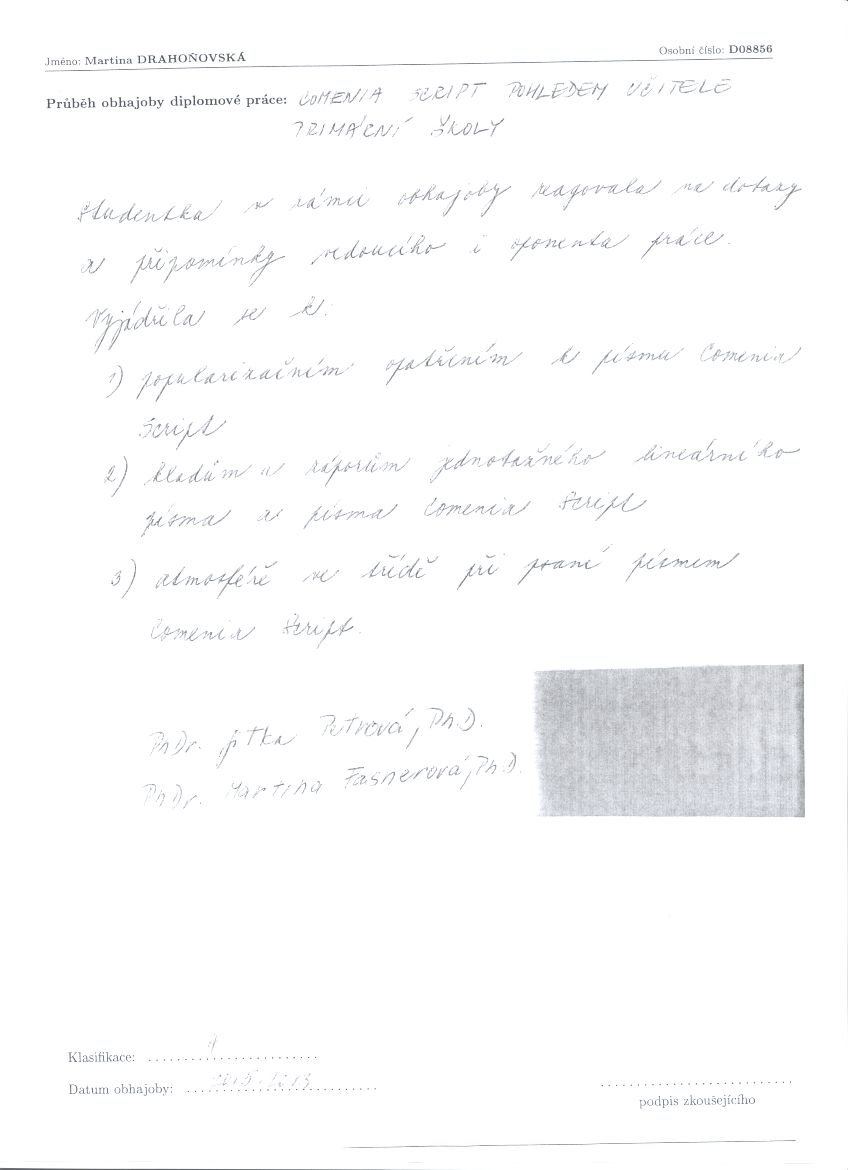 Jméno: Martina DRAHOŇOVSKÁ
Osobní číslo: D08856
Průběh obhajoby diplomové práce: COMENIA SCRIPT POHLEDEM UČITELE
PRIMÁRNÍ ŠKOLY
Studentka v rámci obhajoby reagovala na dotazy
a připomínky vedoucího i oponenta práce.
Vyjádřila se k:
1) popularizačním opatřením k písmu Comenia
Script
2) kladům a záporům jednotažného lineárního
písma a písma Comenia Script
3) atmosféře ve třídě při psaní písmem
Comenia Script.
PhDr. Jitka Petrová, Ph.D.
PhDr. Martina Fasnerová, Ph.D.
Klasifikace:
Datum obhajoby:
podpis zkoušejícího